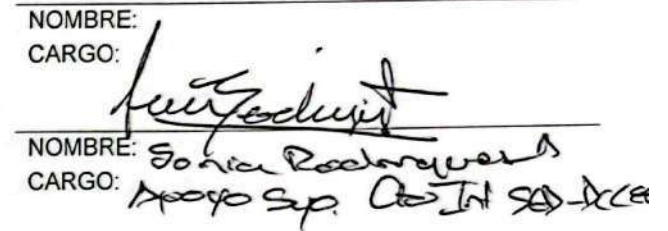 NOMBRE:
CARGO:
NOMBRE: Sonia Rodriguez
CARGO: Apoyo Sup. Cto Int SED-DCCEE